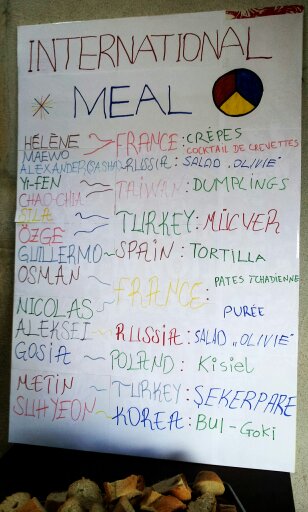 INTERNATIONAL
MEAL
HÉLÈNE FRANCE: CRÊPES
MAEWO COCKTAIL DE CREVETTES
ALEXANDER (SASHA) RUSSIA: SALAD „OLIVIE"
YI-FEN TAIWAN: DUMPLINGS
CHAO-CHIA
SILA TURKEY: MÜCVER
ÖZGE
GUILLERMO SPAIN: TORTILLA
OSMAN PATES TCHADIENNE
FRANCE:
NICOLAS PURÉE
ALEKSEI RUSSIA: SALAD „OLIVIE"
GOSIA POLAND: Kisiel
METIN TURKEY: ŞEKERPARE
SUHYEON KOREA: BUl-GoKi